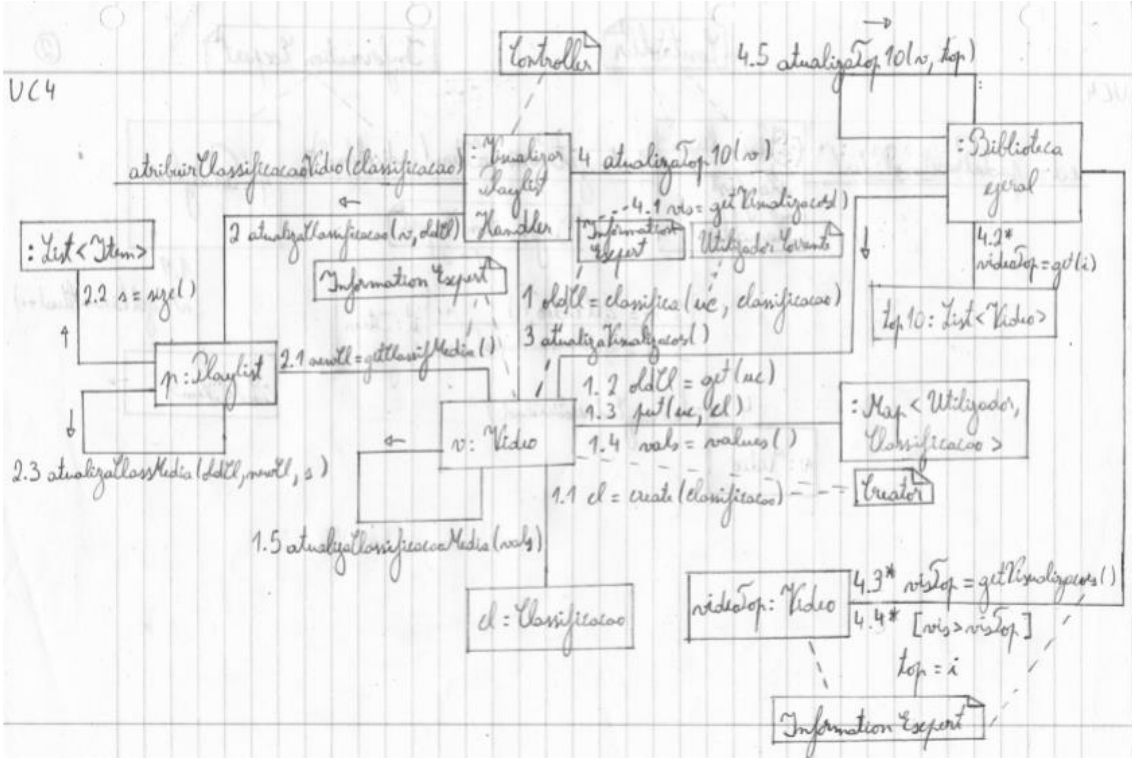 UC4
Controller
4.5 atualizaTop10(v, top)
:Visualizar
Playlist
Handler
:Biblioteca
geral
atribuirClassificacaoVideo(classificacao)
4 atualizaTop10(v)
4.1 vis=getVisualizacoes()
2 atualizaClassificacao(v, oldCl)
Information
Expert
Utilizador Corrente
4.2*
videoTop=get(i)
:List<Item>
2.2 s=size()
Information Expert
1 oldCl=classifica(uc, classificacao)
3 atualizaVisualizacoes()
top10:List<Video>
p:Playlist
2.1 newCl=getClassifMedia()
1.2 oldCl=get(uc)
1.3 put(uc, cl)
1.4 vals=values()
:Map<Utilizador,
Classificacao>
v:Video
2.3 atualizaClassMedia(oldCl, newCl, s)
1.1 cl=create(classificacao)
Creator
1.5 atualizaClassificacaoMedia(vals)
cl:Classificacao
videoTop:Video
4.3* visTop=getVisualizacoes()
4.4* [vis>visTop]
top=i
Information Expert